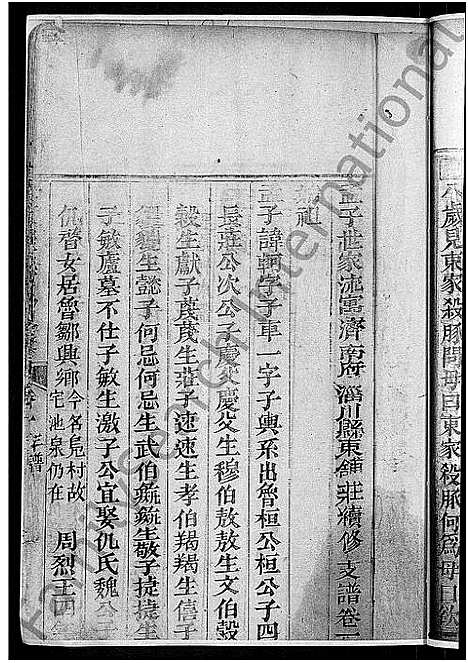 孟子世家流寓濟南府淄川縣東舖莊續修支譜卷一
始祖
孟子諱軻字子車一字子輿系出魯桓公桓公子四
長莊公次公子慶父慶父生穆伯敖敖生文伯穀
穀生獻子蔑蔑生莊子速速生孝伯羯羯生僖子
貜貜生懿子何忌何忌生武伯彘彘生敬子捷捷生
子敏廬墓不仕子敏生激子公宜娶仇氏魏公子
仉晉女居魯鄒興鄉今名鳧村故宅池泉仍在 周烈王四年
卷一 支譜
歲見東家殺豚問母曰東家殺豚何為母曰欲
FamilySearch International